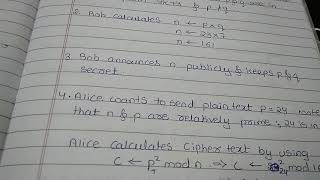 2. Bob calculates n ← p × q
n ← 23×7
n ← 161
3. Bob announces n publicly & keeps p & q
secret
4. Alice wants to send plain text P = 24 note
that n & p are relatively prime; 24 is in
Alice calculates Cipher text by using
C ← P² mod n ⇒ C ← 24² mod